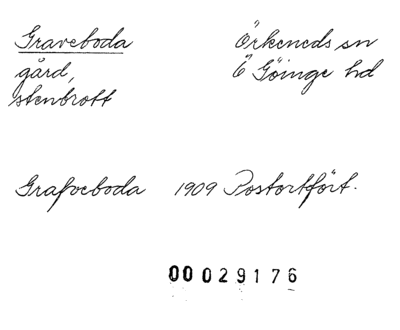 Graveboda Örkeneds sn
gård, Ö Göinge hd
stenbrott
Grafveboda 1909 Postortfört.
00029176